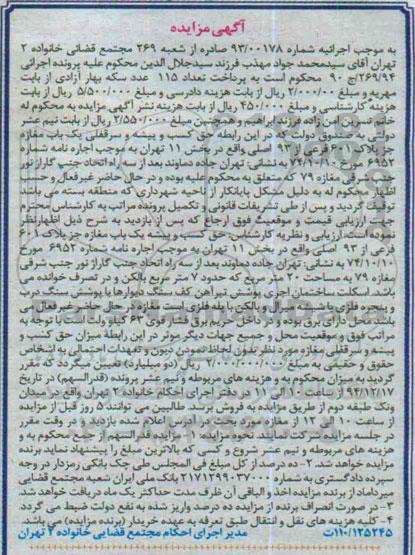 آگهی مزایده
به موجب اجرائیه شماره ۹۳/۰۰۱۷۸ صادره از شعبه ۲۶۹ مجتمع قضائی خانواده ۲
تهران آقای سیدمحمد جواد مهذب فرزند سیدجلال الدین محکوم علیه پرونده اجرائی
۲۶۹/۹۴/ج ۹۰ محکوم است به پرداخت تعداد ۱۱۵ عدد سکه بهار آزادی از بابت
مهریه و مبلغ ۲/۰۰۰/۰۰ ریال از بابت هزینه دادرسی و مبلغ ۵/۵۰۰/۰۰۰ ریال از بابت
هزینه کارشناسی و مبلغ ۴۵۰/۰۰۰ ریال از بابت هزینه نشر آگهی مزایده به محکوم له
خانم نسرین امن زاده فرزند ابراهیم و همچنین مبلغ ۲/۵۵۰/۰۰۰ ریال از بابت نیم عشر
دولتی در حق صندوق دولت که در این رابطه حق کسب و پیشه و سرقفلی یک باب مغازه
جز پلاک ۶۰۱ فرعی از ۹۳ اصلی واقع در بخش ۱۱ تهران به موجب اجاره نامه شماره
۶۹۵۲ مورخ ۷۴/۱۰/۱۰ به نشانی: تهران جاده دماوند بعد از سه راه اتحاد جنب گاراژ تور
جنب شرقی مغازه ۷۹ که متعلق به محکوم علیه بوده و در حال حاضر غیرفعال و حسب
اظهار محکوم له به دلیل مشکل پایانکار از ناحیه شهرداری که منطقه بسته می باشد
توقیف گردید و پس از طی تشریفات قانونی و تکمیل پرونده مراتب به کارشناس محترم
جهت ارزیابی قیمت و موقعیت فوق ارجاع که پس از بازدید به شرح ذیل اظهارنظر
نموده است. ارزیابی و نظریه کارشناس: حق کسب و پیشه یک باب مغازه جز پلاک ۶۰۱
فرعی از ۹۳ اصلی واقع در بخش ۱۱ تهران به موجب اجاره نامه شماره ۶۹۵۲ مورخ
۷۴/۱۰/۱۰ به نشانی: تهران جاده دماوند بعد از سه راه اتحاد جنب گاراژ تور جنب شرقی
مغازه ۷۹ به مساحت ۲۰ متر مربع که حدود ۷ متر مربع بالکن در تصرف خوانده می
باشد. اسکلت ساختمان آجری پوشش تیرآهن کف سنگ دیوارها با پوشش سنگ درب
و پنجره فلزی با شیشه سرال و بالکن با پله فلزی است مغازه در حال حاضر غیر فعال می
باشد محل دارای برق بوده و در داخل حریم برق فشار قوی ۶۳ کیلو ولت است با توجه به
مراتب فوق و موقعیت محل و جمیع جهات دیگر موثر در این رابطه میزان حق کسب و
پیشه و سرقفلی مغازه مورد نظر بدون لحاظ نمودن دیون و تعهدات احتمالی به اشخاص
حقوق و حقیقی به مبلغ ۲/۰۰۰/۰۰۰/۰۰۰ ریال (دو میلیارد) تعیین میگردد که مقرر
گردید به میزان محکوم به و هزینه های مربوطه و نیم عشر پرونده (قدرالسهم) در تاریخ
۹۴/۱۲/۱۷ از ساعت ۱۰ الی ۱۱ در دفتر اجرای احکام خانواده ۲ تهران واقع در میدان
ونک طبقه دوم از طریق مزایده به فروش برسد. طالبین می توانند ۵ روز قبل از مزایده
از ساعت ۱۰ الی ۱۲ از مغازه مورد بحث در آدرس اعلام شده بازدید و در وقت مقرر
در جلسه مزایده شرکت نمایند. نحوه مزایده: ۱- مزایده قدرالسهم از جمع محکوم به و
هزینه های مربوطه و نیم عشر شروع و کسی که بالاترین مبلغ را پیشنهاد نماید برنده
مزایده خواهد شد. ۲- ده درصد از کل مبلغ فی المجلس طی چک بانکی رمزدار در وجه
سپرده دادگستری به شماره ۲۱۷۱۲۹۹۰۳۷۰۰۰ بانک ملی ایران شعبه مجتمع قضایی
میرداماد از برنده مزایده اخذ و الباقی آن ظرف مدت حداکثر یک ماه دریافت خواهد شد.
۳- در صورت انصراف برنده از مزایده ده درصد واریز شده به نفع دولت ضبط می گردد.
۴- کلیه هزینه های نقل و انتقال طبق تعرفه به عهده خریدار (برنده مزایده) می باشد.
مدیر اجرای احکام مجتمع قضایی خانواده ۲ تهران
۱۱۰/۱۲۵۲۴۵/ت